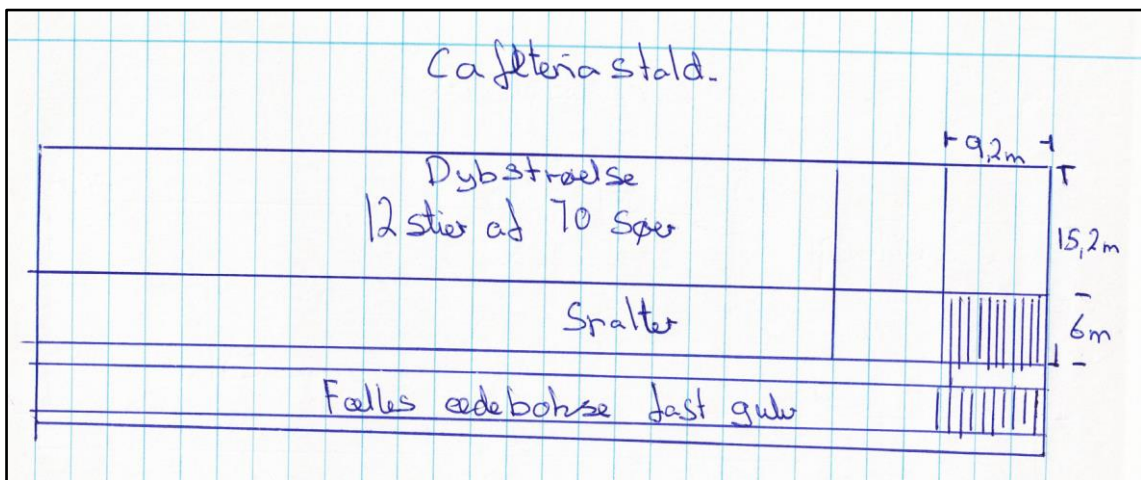 Cafeteria stald.
9,2m
Dybstrøelse
12 stier af 70 søer
15,2m
Spalter
6m
Fælles ædebokse fast gulv